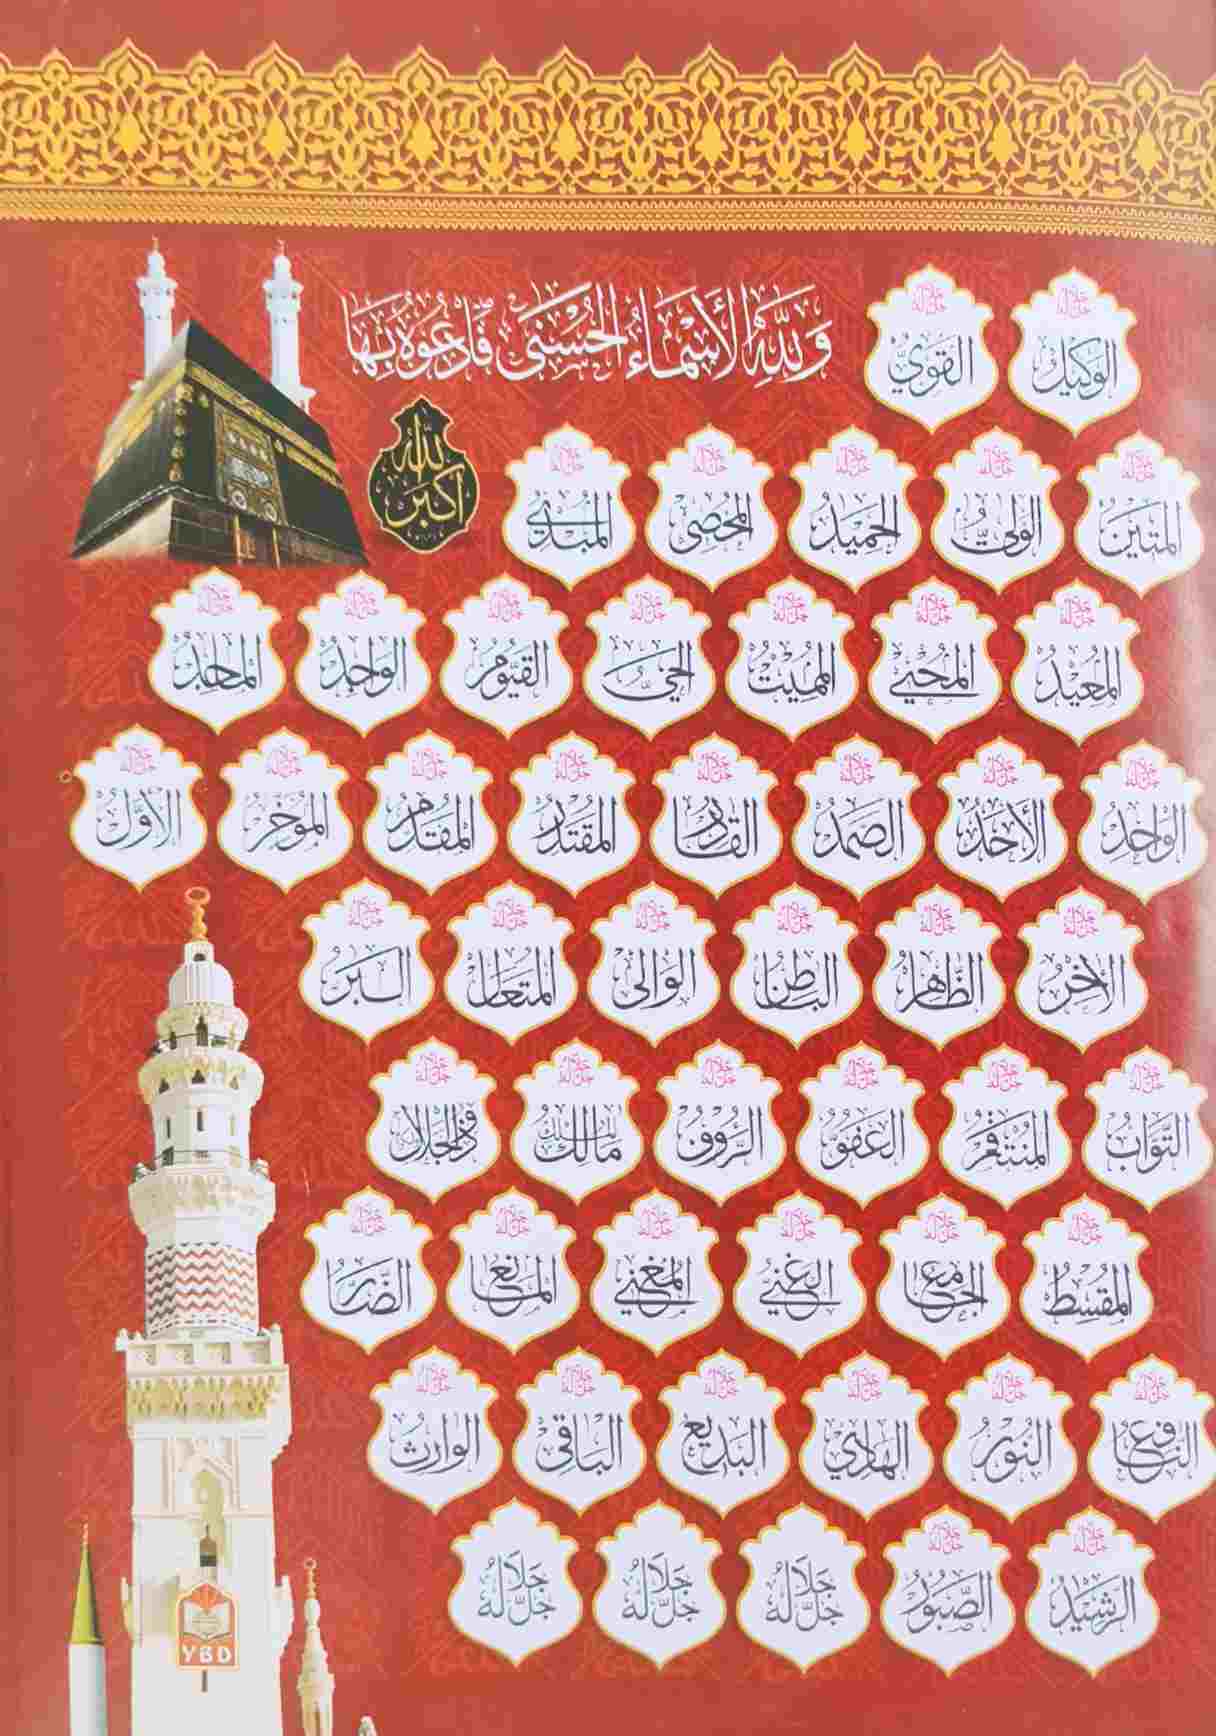 وَلِلَّهِ الْأَسْمَاءُ الْحُسْنَى فَادْعُوهُ بِهَا
الله اكبر
جل جلاله الوكيل جل جلاله القوي
جل جلاله المتين جل جلاله الولي جل جلاله الحميد جل جلاله المحصى جل جلاله المبدئ
جل جلاله المعيد جل جلاله المحيي جل جلاله المميت جل جلاله الحي جل جلاله القيوم جل جلاله الواجد جل جلاله الماجد
جل جلاله الواحد جل جلاله الأحد جل جلاله الصمد جل جلاله القادر جل جلاله المقتدر جل جلاله المقدم جل جلاله المؤخر جل جلاله الأول
جل جلاله الأخر جل جلاله الظاهر جل جلاله الباطن جل جلاله الوالى جل جلاله المتعال جل جلاله البر
جل جلاله التواب جل جلاله المنتقم جل جلاله العفو جل جلاله الرؤوف جل جلاله مالك الملك جل جلاله ذو الجلال
جل جلاله المقسط جل جلاله الجامع جل جلاله الغني جل جلاله المغني جل جلاله المانع جل جلاله الضار
جل جلاله النافع جل جلاله النور جل جلاله الهادي جل جلاله البديع جل جلاله الباقى جل جلاله الوارث
جل جلاله الرشيد جل جلاله الصبور جل جلاله جل جلاله جل جلاله
YBD